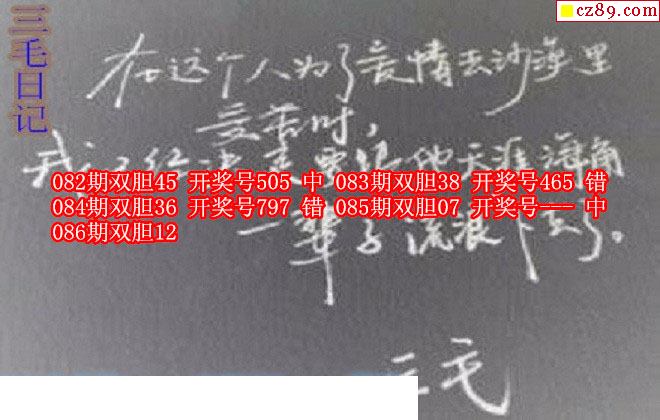 cz89.com
三毛日记
在这个人为了爱情去沙漠里
受苦时,
我心里已经决定要跟他天涯海角
082期双胆45 开奖号505 中 083期双胆38 开奖号465 错
084期双胆36 开奖号797 错 085期双胆07 开奖号--- 中
086期双胆12
一辈子流浪下去了。
三毛